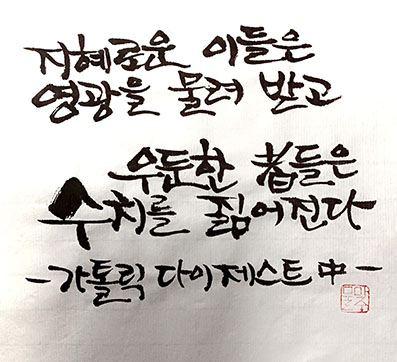 지혜로운 이들은
영광을 물려 받고
우둔한 者들은
수치를 짊어진다
-가톨릭 다이제스트 中-